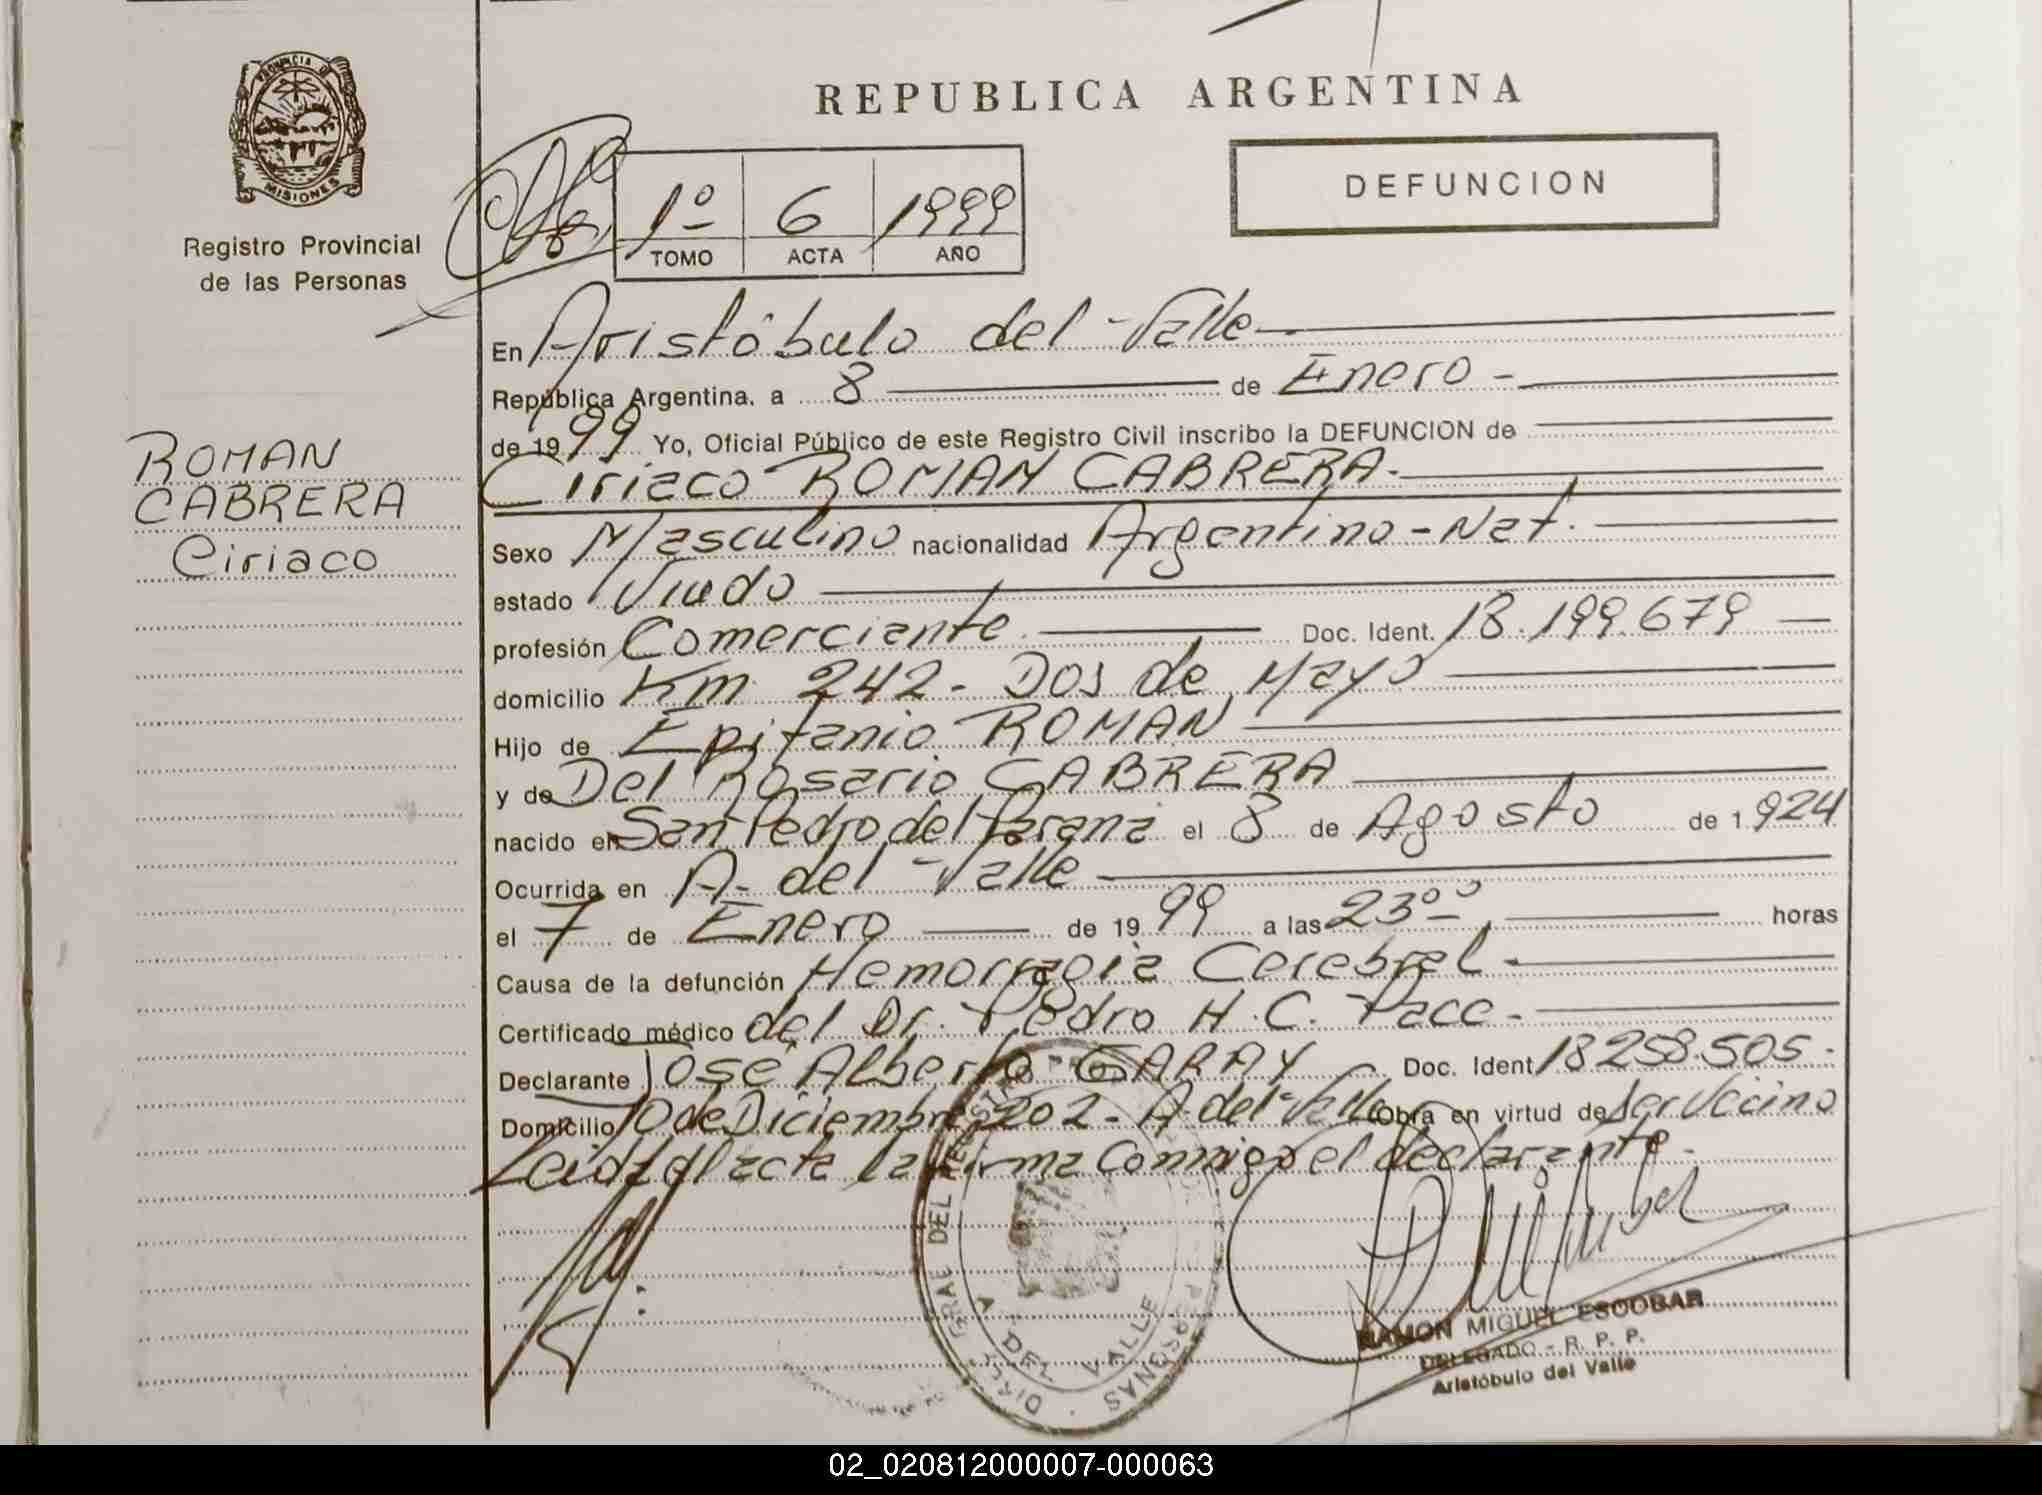 PROVINCIA DE
MISIONES
Registro Provincial
de las Personas
ROMAN
CABRERA
Ciriaco
REPUBLICA ARGENTINA
DEFUNCION
1º 6 1999
TOMO ACTA AÑO
En Aristóbulo del Valle
República Argentina, a 8 de Enero -
de 1999 Yo, Oficial Público de este Registro Civil inscribo la DEFUNCION de
Ciriaco ROMAN CABRERA.
Sexo Masculino nacionalidad Argentino - Nat.
estado Viudo
profesión Comerciante Doc. Ident. 18.199.679
domicilio Km 242 - Dos de Mayo
Hijo de Epifanio ROMAN
y de Del Rosario CABRERA
nacido en San Pedro del Paraná el 8 de Agosto de 1924
Ocurrida en A. del Valle
el 7 de Enero de 1999 a las 23ºº horas
Causa de la defunción Hemorragia Cerebral
Certificado médico del Dr. Pedro H. C. Pacc.
Declarante José Alberto GARAY Doc. Ident 18258.505.
Domicilio 10 de Diciembre 202 - A. del Valle Obra en virtud de ser Vecino
Leida el acta la firma Conmigo el declarante.
DEL VALLE
PERSONAS
RAMON MIGUEL ESCOBAR
DELEGADO - R. P. P.
Aristóbulo del Valle
02_020812000007-000063